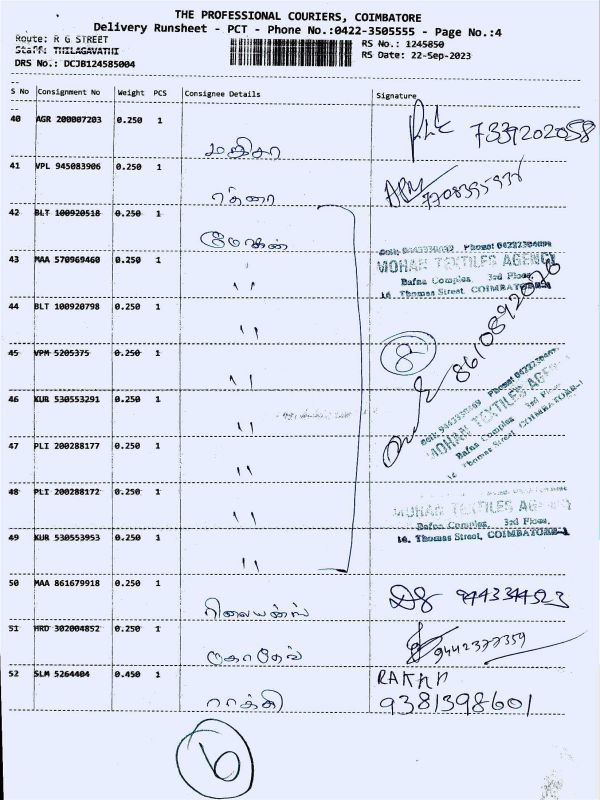 THE PROFESSIONAL COURIERS, COIMBATORE
Delivery Runsheet - PCT - Phone No.:0422-3505555 - Page No.:4
Route: R G STREET RS No.: 1245850
Staff: THILAGAVATHI RS Date: 22-Sep-2023
DRS No.: DCJB124585004
S No Consignment No Weight PCS Consignee Details Signature
40 AGR 200007203 0.250 1
7339202058
41 VPL 945083906 0.250 1
7708395938
42 BLT 100920518 0.250 1
மோகன்
43 MAA 570969460 0.250 1
MOHAN TEXTILES AGENCY
Bafna Complex, 3rd Floor,
16, Thomas Street, COIMBATORE-1
"
44 BLT 100920798 0.250 1
8610892076
"
8
45 VPM 5205375 0.250 1
"
46 KUR 530553291 0.250 1
MOHAN TEXTILES AGENCY
Bafna Complex 3rd Floor
16 Thomas Street, COIMBATORE-1
"
47 PLI 200288177 0.250 1
"
48 PLI 200288172 0.250 1
MOHAN TEXTILES AGENCY
Bafna Complex, 3rd Floor,
16, Thomas Street, COIMBATORE-1
"
49 KUR 530553953 0.250 1
"
50 MAA 861679918 0.250 1
ரிலையன்ஸ்
51 HRD 302004852 0.250 1
9442377359
மகாதேவ்
52 SLM 5264404 0.450 1
ராக்கி
9381398601
6